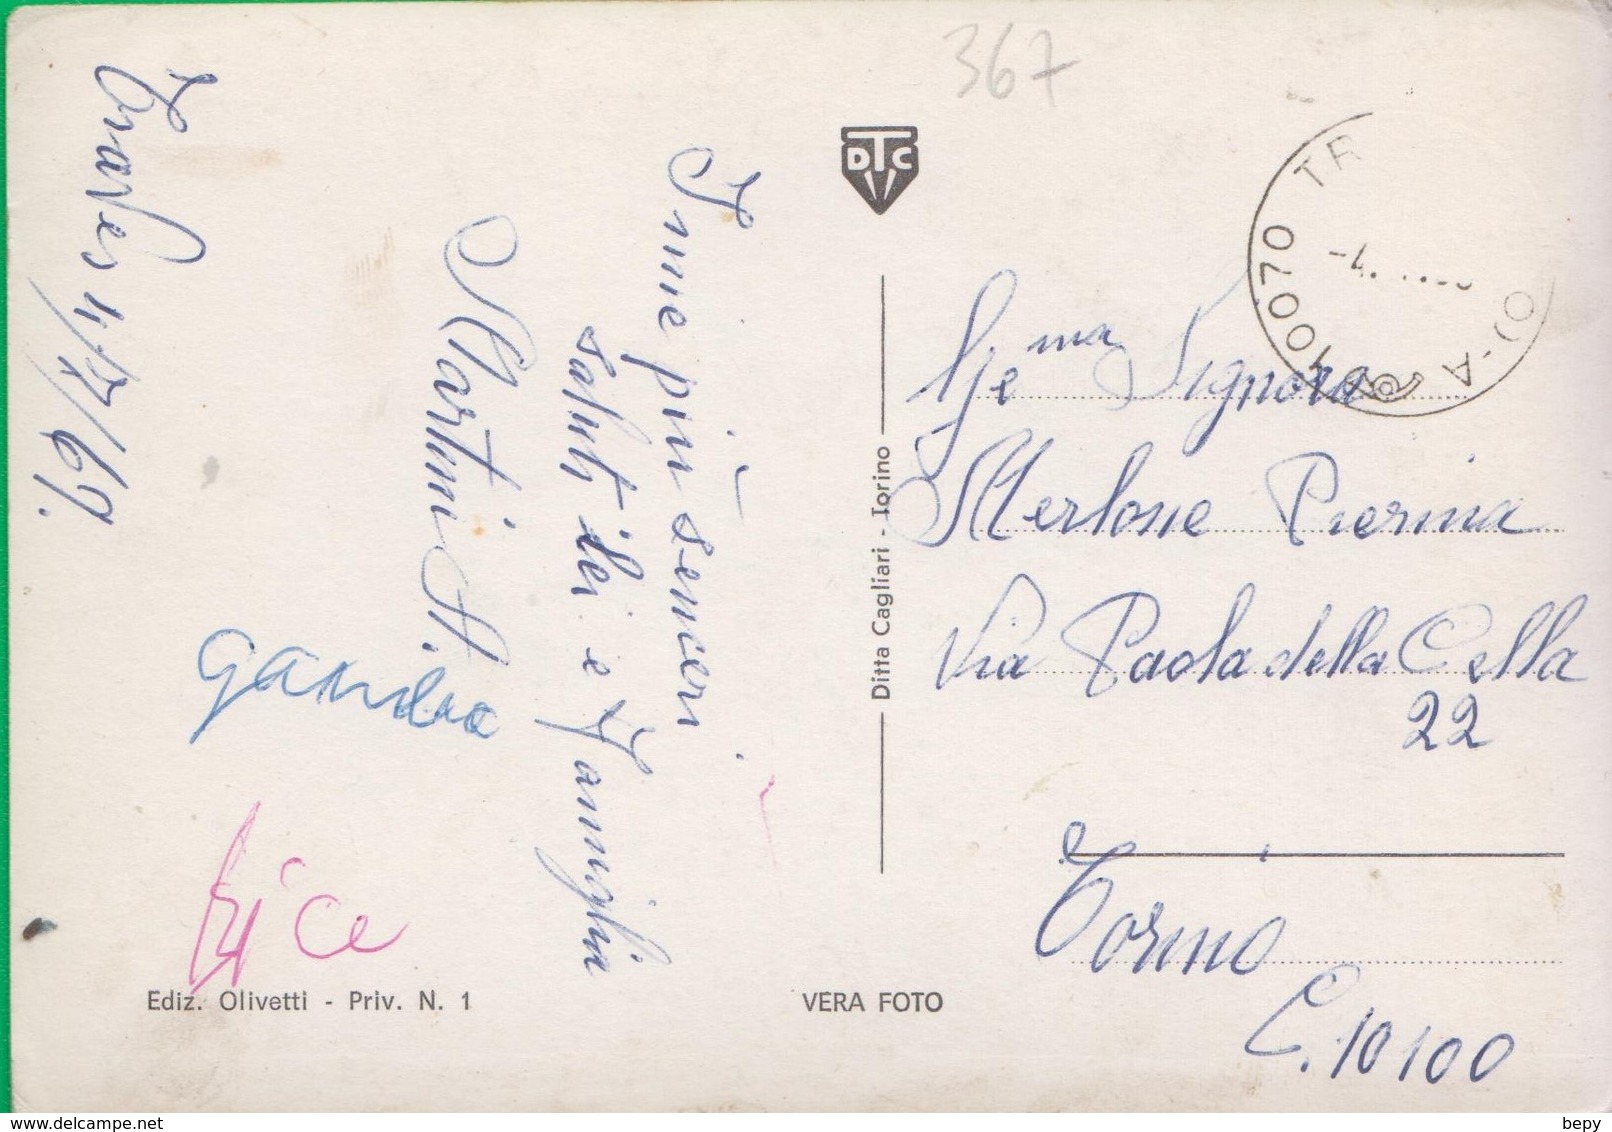 367
Traves 4/7/69.
I miei più sinceri
saluti a lei e Famiglia
Martini A.
Gandra
Bice
DTC
10070 TR
O)-A
-4.
Gge ma Signora
Merlone Pierina
Via Paola della Cella
22
Torino
C. 10100
Ditta Cagliari - Torino
Ediz. Olivetti - Priv. N. 1
VERA FOTO
www.delcampe.net
bepy